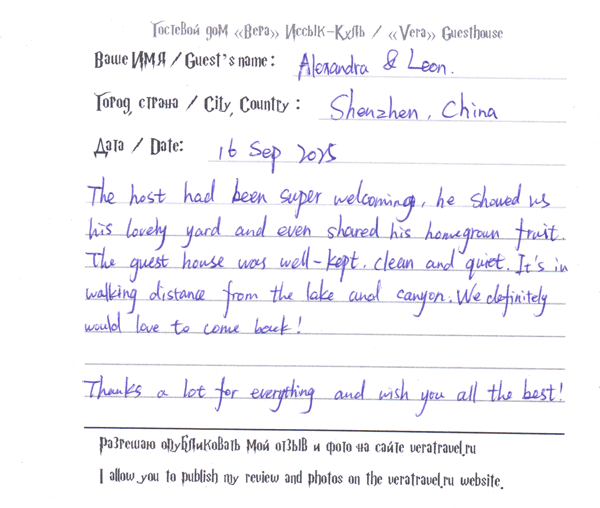 Гостевой дом «Вера» Иссык-Куль / «Vera» Guesthouse
Ваше ИМЯ / Guest's name: Alexandra & Leon.
Город, страна / City, Country: Shenzhen, China
Дата / Date: 16 Sep 2025
The host had been super welcoming, he showed us
his lovely yard and even shared his homegrown fruit.
The guest house was well-kept, clean and quiet. It's in
walking distance from the lake and canyon. We definitely
would love to come back!
Thanks a lot for everything and wish you all the best!
Разрешаю опубликовать мой отзыв и фото на сайте veratravel.ru
I allow you to publish my review and photos on the veratravel.ru website.